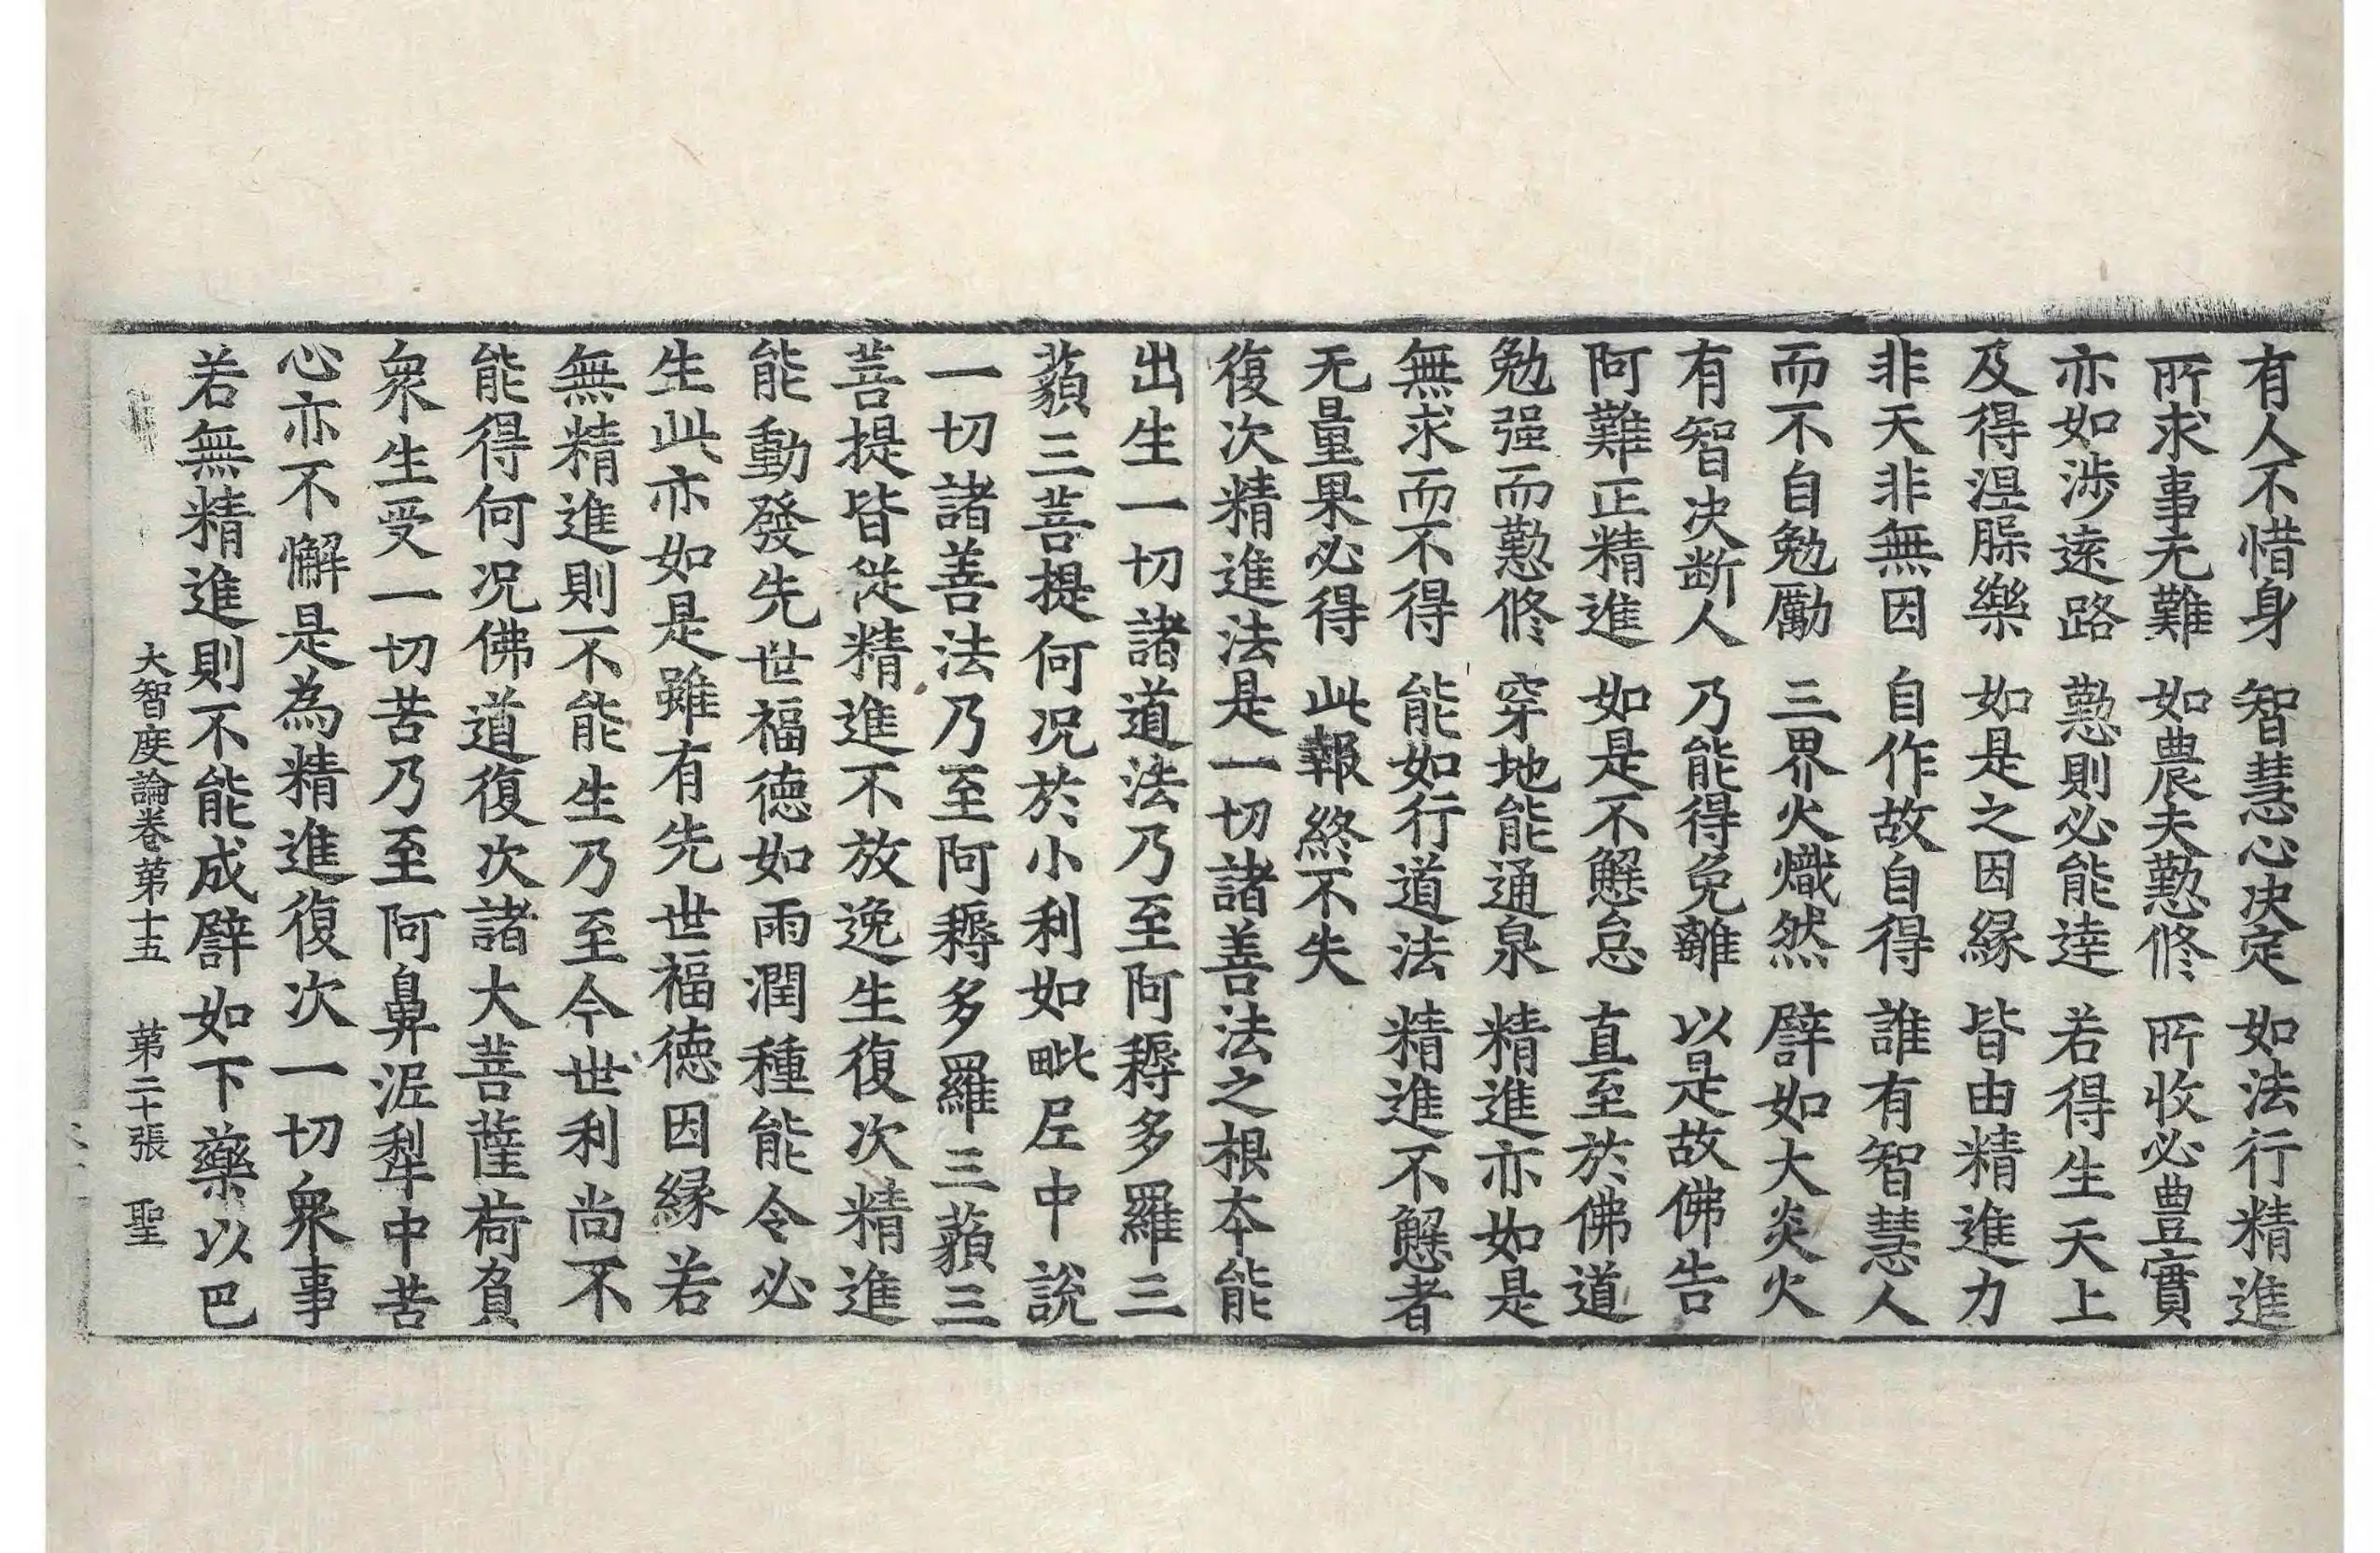 有人不惜身 智慧心决定 如法行精進
所求事无難 如農夫懃修 所收必豊實
亦如涉遠路 懃則必能逹 若得生天上
及得涅槃樂 如是之因縁 皆由精進力
非天非無因 自作故自得 誰有智慧人
而不自勉勵 三界火熾然 譬如大炎火
有智决断人 乃能得免離 以是故佛告
阿難正精進 如是不懈怠 直至於佛道
勉强而懃修 穿地能通泉 精進亦如是
無求而不得 能如行道法 精進不懈者
无量果必得 此報終不失
復次精進法是一切諸善法之根本能
出生一切諸道法乃至阿耨多羅三
藐三菩提何况於小利如毗尼中說
一切諸善法乃至阿耨多羅三藐三
菩提皆從精進不放逸生復次精進
能動發先世福徳如雨潤種能令必
生此亦如是雖有先世福徳因縁若
無精進則不能生乃至今世利尚不
能得何况佛道復次諸大菩薩荷負
衆生受一切苦乃至阿鼻泥犁中苦
心亦不懈是為精進復次一切衆事
若無精進則不能成譬如下藥以巴
大智度論卷第十五 第二十張 聖